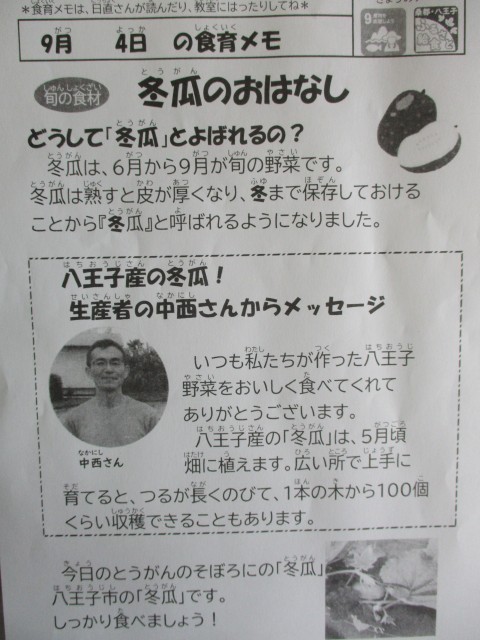 ＊食育メモは、日直さんが読んだり、教室にはったりしてね＊
9月 4日 の食育メモ
旬の食材
冬瓜のおはなし
どうして「冬瓜」とよばれるの？
冬瓜は、6月から9月が旬の野菜です。
冬瓜は熟すと皮が厚くなり、冬まで保存しておける
ことから『冬瓜』と呼ばれるようになりました。
八王子産の冬瓜！
生産者の中西さんからメッセージ
いつも私たちが作った八王子
野菜をおいしく食べてくれて
ありがとうございます。
八王子産の「冬瓜」は、5月頃
畑に植えます。広い所で上手に
育てると、つるが長くのびて、1本の木から100個
くらい収穫できることもあります。
中西さん
今日のとうがんのそぼろにの「冬瓜」
八王子市の「冬瓜」です。
しっかり食べましょう！